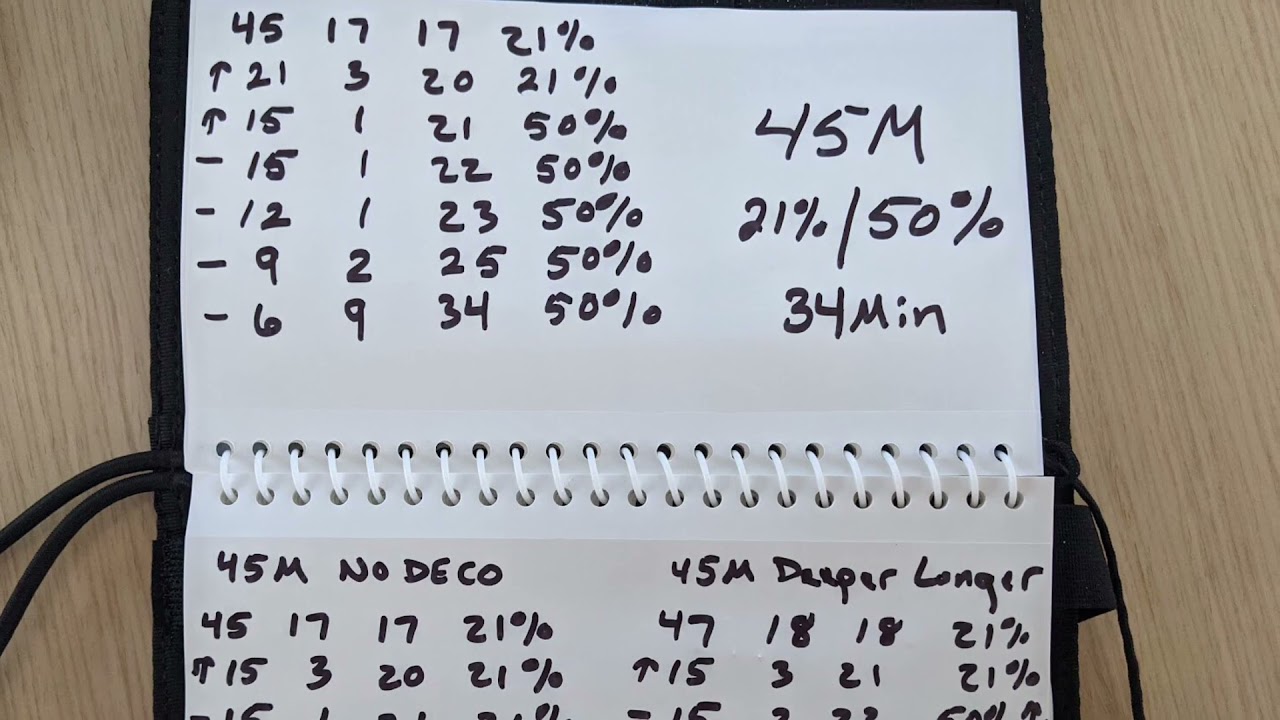 45 17 17 21%
↑ 21 3 20 21%
↑ 15 1 21 50%
- 15 1 22 50%
- 12 1 23 50%
- 9 2 25 50%
- 6 9 34 50%
45M
21%/50%
34Min
45M NO DECO
45 17 17 21%
↑ 15 3 20 21%
- 15 1 21 21%
45M Deeper Longer
47 18 18 21%
↑ 15 3 21 21%
- 15 50% ↑